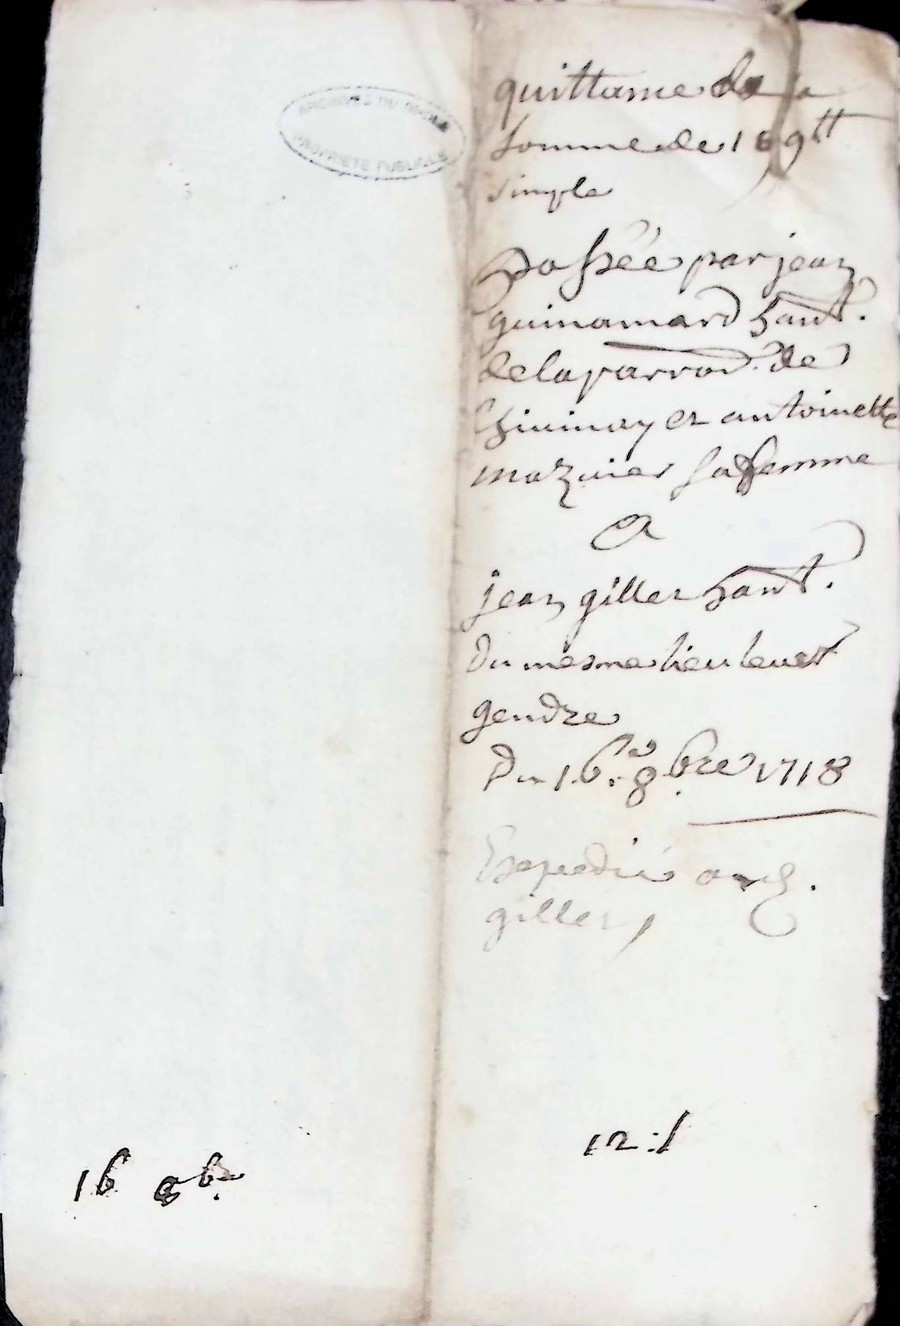 ARCHIVES DU RHÔNE
PROPRIÉTÉ PUBLIQUE
quittance de la
somme de 169tt
simple
passée par jean
guinamard habt.
de la parroi. de
Chivinay et antoinette
mazuier sa femme
A
jean gilles habt.
du mesme lieu leur
gendre
Du 16.e 8.bre 1718
Expedié aud.
gilles
12:f
16 8b.